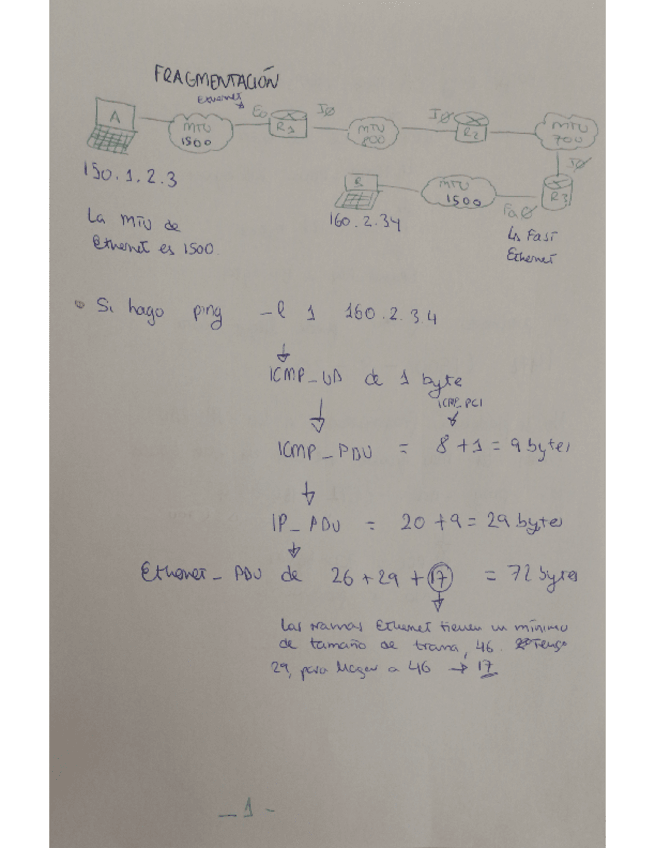 FRAGMENTACIÓN
Ethernet
A
MTU
1500
E0
R1
S0
MTU
S0
R2
MTU
700
S0
R3
150.1.2.3
B
MTU
1500
Fa0
160.2.34
La MTU de
Ethernet es 1500.
Ls Fast
Ethernet
Si hago ping -l 1 160.2.3.4
ICMP_UD de 1 byte
ICMP_PDU = 8 + 1 = 9 bytes
IP_PDU = 20 + 9 = 29 bytes
Ethernet_PDU de 26 + 29 + 17 = 72 bytes
Las tramas Ethernet tienen un mínimo
de tamaño de trama, 46. Tengo
29, para llegar a 46 → 17
- 1 -